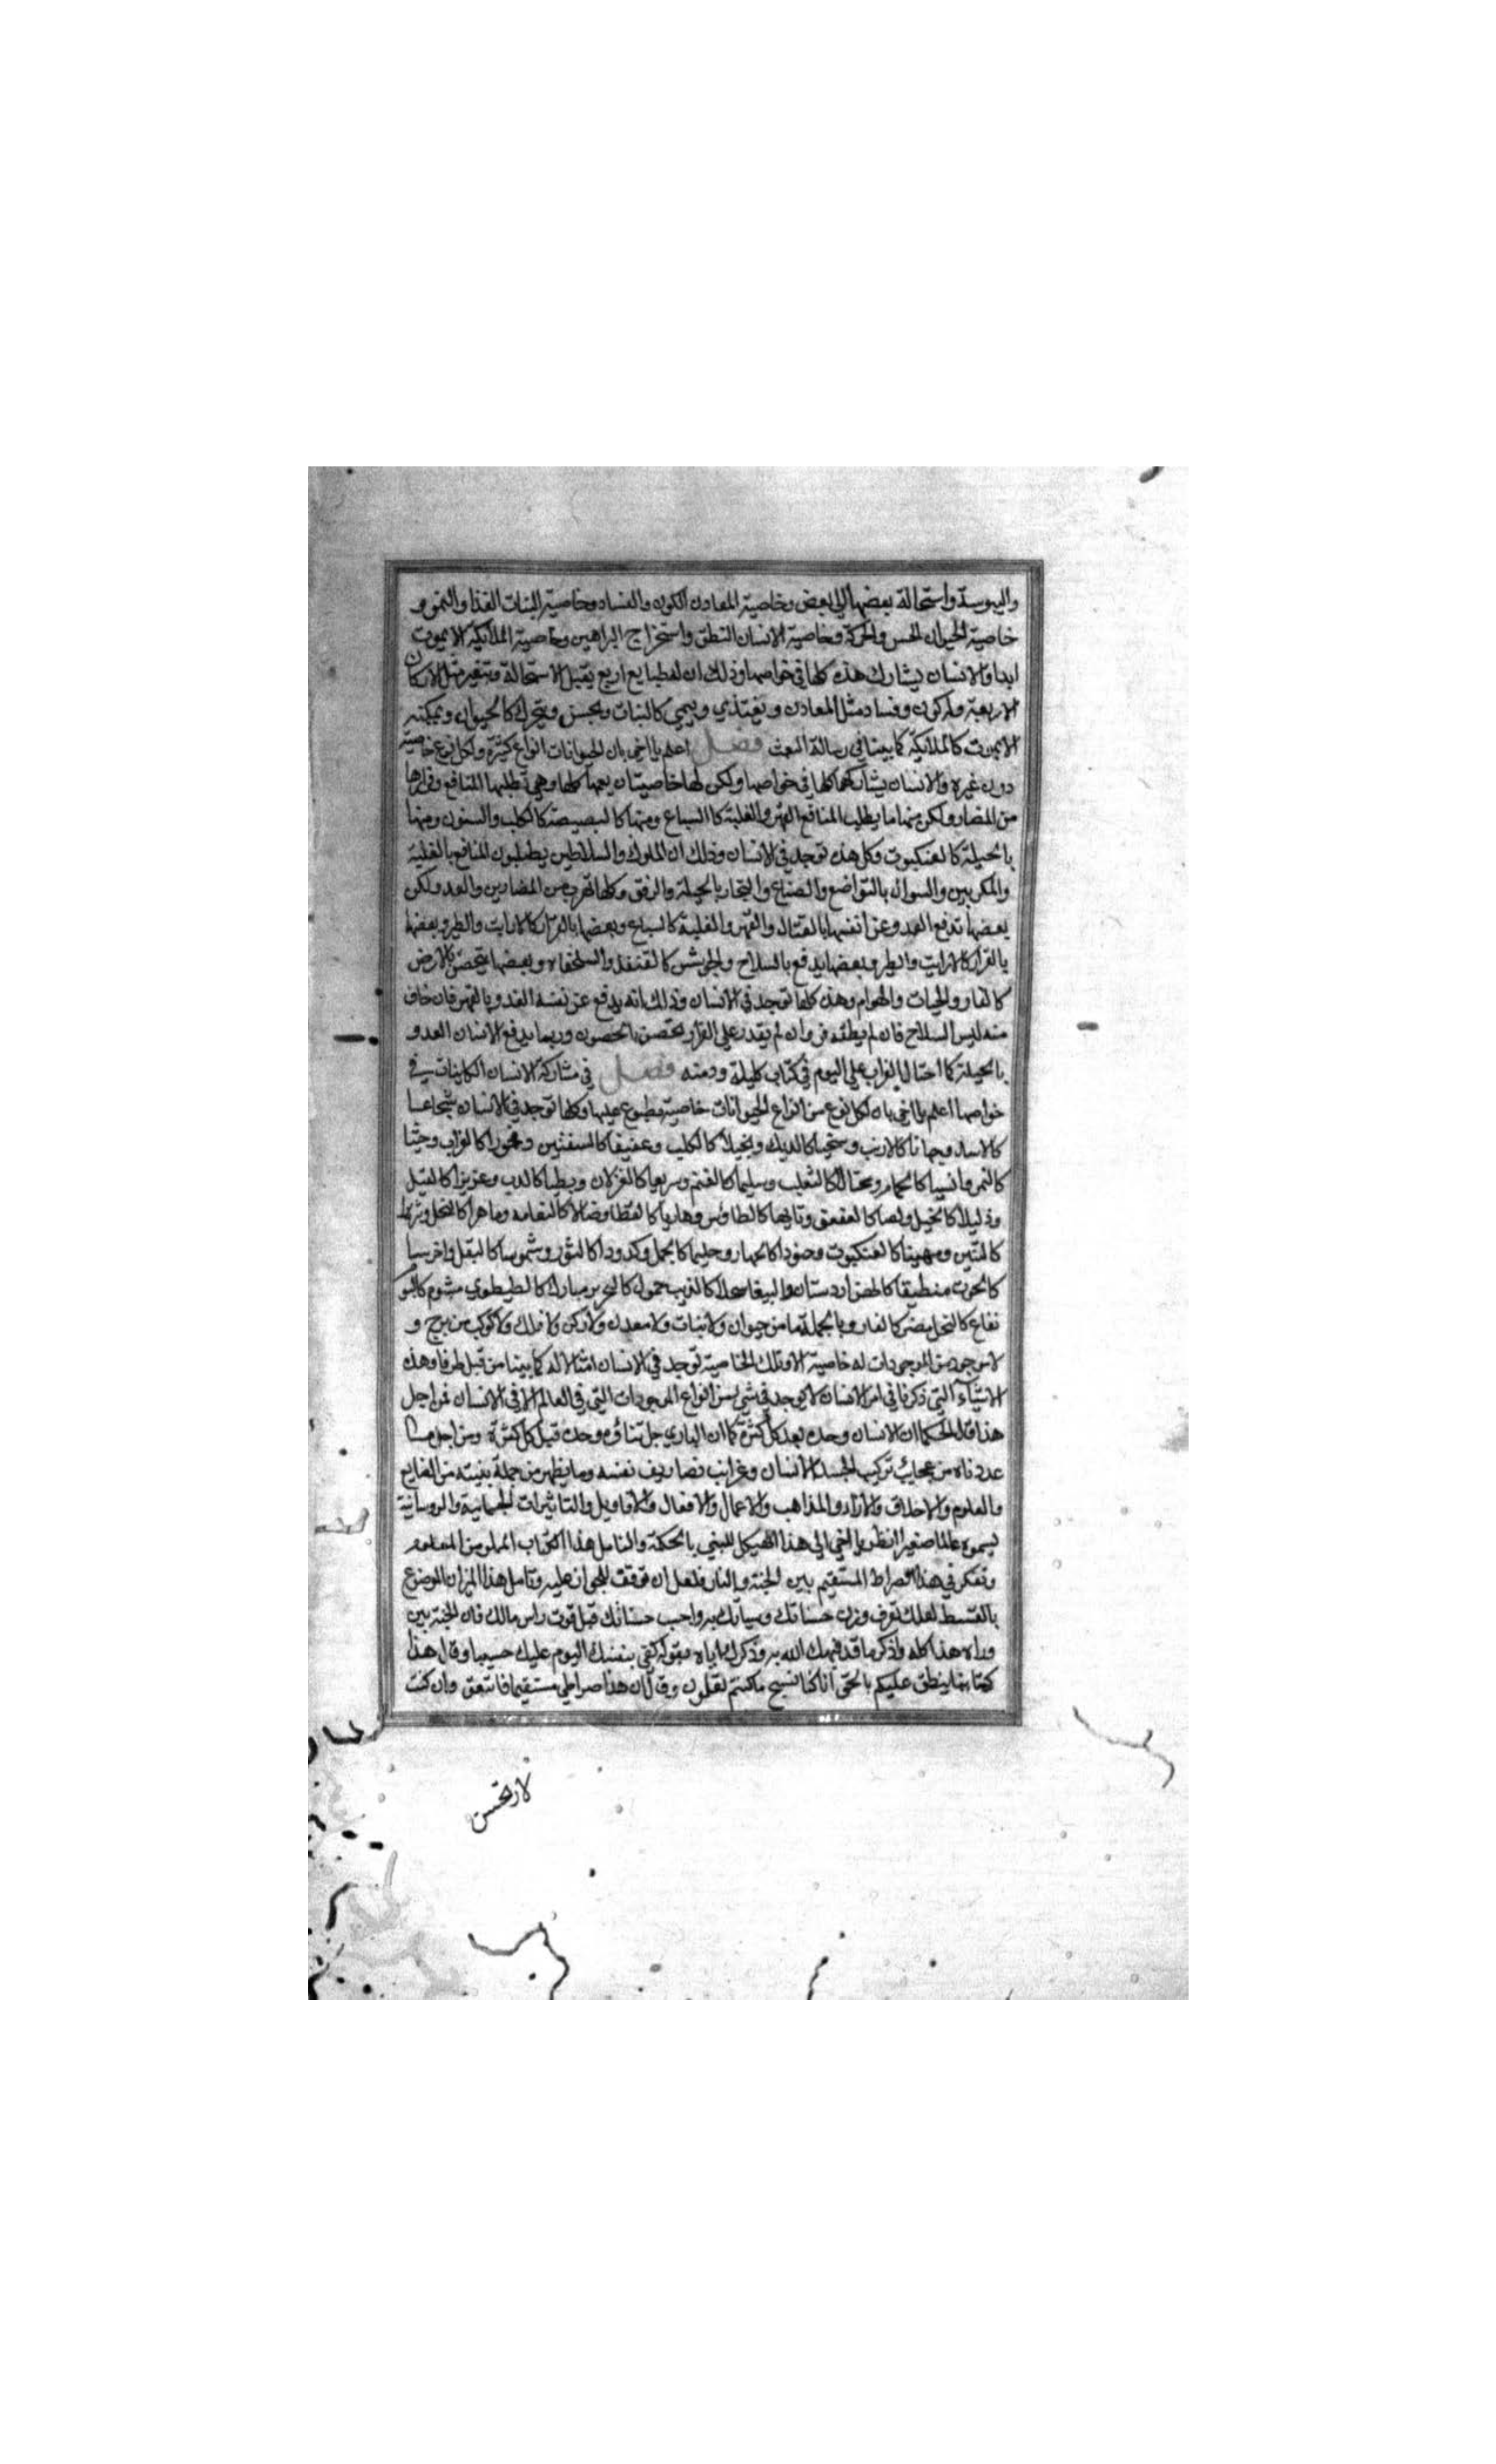 واليبوسة واستحالة بعضها الي بعض وخاصية المعادن الكون والفساد وخاصية النبات الغذا والنمو و
خاصية الحيوان الحس والحركة وخاصية الانسان النطق واستخراج البراهين وخاصية الملائكة الا يموت
ابدا والانسان يشارك هذه كلها في خواصها وذلك ان له طبايع اربع يقبل الاستحالة وتتغير مثل الاركان
الاربعة وله كون وفساد مثل المعادن ويغتذي وينمي كالنبات ويحس ويتحرك كالحيوان ويمكنه
الا يموت كالملايكة كما بينا في رسالة البعث فصل اعلم يا اخي بان للحيوانات انواع كثيرة ولكل نوع خاصية
دون غيره والانسان يشاركها كلها في خواصها ولكن لها خاصيتان يعمها كلها وهي تطلبها المنافع وفرارها
من المضار ولكن منها ما يطلب المنافع القهر والغلبة كاالسباع ومنها كالبصبصة كالكلب والسنور ومنها
بالحيلة كالعنكبوت وكل هذه توجد في الانسان وذلك ان الملوك والسلاطين يطلبون المنافع بالغلبة
والمكربين والسوال بالتواضع والصناع والتجار بالحيلة والرفق وكلها تهرب من المضارين والعدو ولكن
بعضها تدفع العدو عن انفسها بالقتال والقهر والغلبة كالسباع وبعضها بالفرار كالارانب والطير وبعضها
بالفرار كالارانب والطير وبعضها يدفع بالسلاح والجوشن كالقنفذ والسلحفاه وبعضها يتحصن بالارض
كالفار والحيات والهوام وهذه كلها توجد في الانسان وذلك انه يدفع عن نفسه العدو بالقهر فان خاف
منه لبس السلاح فان لم يطقه فر وان لم يقدر علي الفرار تحصن بالحصون وربما يدفع الانسان العدو
بالحيلة كما احتال الغراب علي البوم في كتاب كليلة ودمنه فصل في مشاركة الانسان الكاينات في
خواصها اعلم يا اخي بان لكل نوع من انواع الحيوانات خاصية مطبوع عليها وكلها توجد في الانسان شجاعا
كالاسد وجبانا كالارنب وسخيا كالديك وبخيلا كالكلب وعفيفا كالسمك وفخورا كالغراب وحشيا
كالنمر وانسيا كالحمام ومحتالا كالثعلب وسليما كالغنم وسريعا كالغزلان وبطيا كالدب وعزيزا كالفيل
وذليلا كالجمل ولصا كالعقعق وتايها كالطاؤس وهاديا كالقطا وضالا كالنعامه وماهرا كالنحل وشرها
كالتنين ومهينا كالعنكبوت وحقودا كالحمار وحليما كالجمل وكدودا كالثور وشموسا كالبغل واخرسا
كالحوت منطيقا كالهزاردستان والببغا كالذيب حمول كالخنزير مبارك كالطيطوي مشوم كالبوم
نفاع كالنحل مضر كالفار وبالجملة ما من حيوان ولا نبات ولا معدن ولا ركن ولا فلك ولا كوكب من برج و
لا موجود من الموجودات له خاصية الا وتلك الخاصية توجد في الانسان امثالا له كما بينا من قبل طرفا وهذه
الاشياء التي ذكرنا في امر الانسان لا يوجد في شي من انواع الموجودات التي في العالم الا في الانسان فمن اجل
هذا قال الحكما ان الانسان وحده بعد كل كثرة كما ان الباري جل ثناؤه وحده قبل كل كثرة ومن اجل ما
عددناه من عجايب تركيب الجسد الانسان وغرايب تصاريف نفسه وما يظهر من جملة بنيته من الصنايع
والعلوم والاخلاق والارآء والمذاهب والاعمال والافعال والاقاويل والتاثيرات الجسمانية والروحانية
يسموه عالما صغيرا انظر يا اخي الي هذا الهيكل المبني بالحكمة والتامل هذا الكتاب المملو من العلوم
وتفكر في هذا الصراط المستقيم بين الجنة والنار فلعل ان توفقت للجواز عليه وتامل هذا الميزان الموضوع
بالقسط لعلك تعرف وزن حسناتك وسياتك به واحسب حسناتك قبل فوت راس مالك فان الجنة بين
وراء هذا كله واذكر ما قد فهمك الله به وذكرك باياه بقوله كفي بنفسك اليوم عليك حسيبا وقال هذا
كتابنا ينطق عليكم بالحق انا كنا نستنسخ ما كنتم تعملون وقال ان هذا صراطي مستقيما فاتبعوه وان كنت